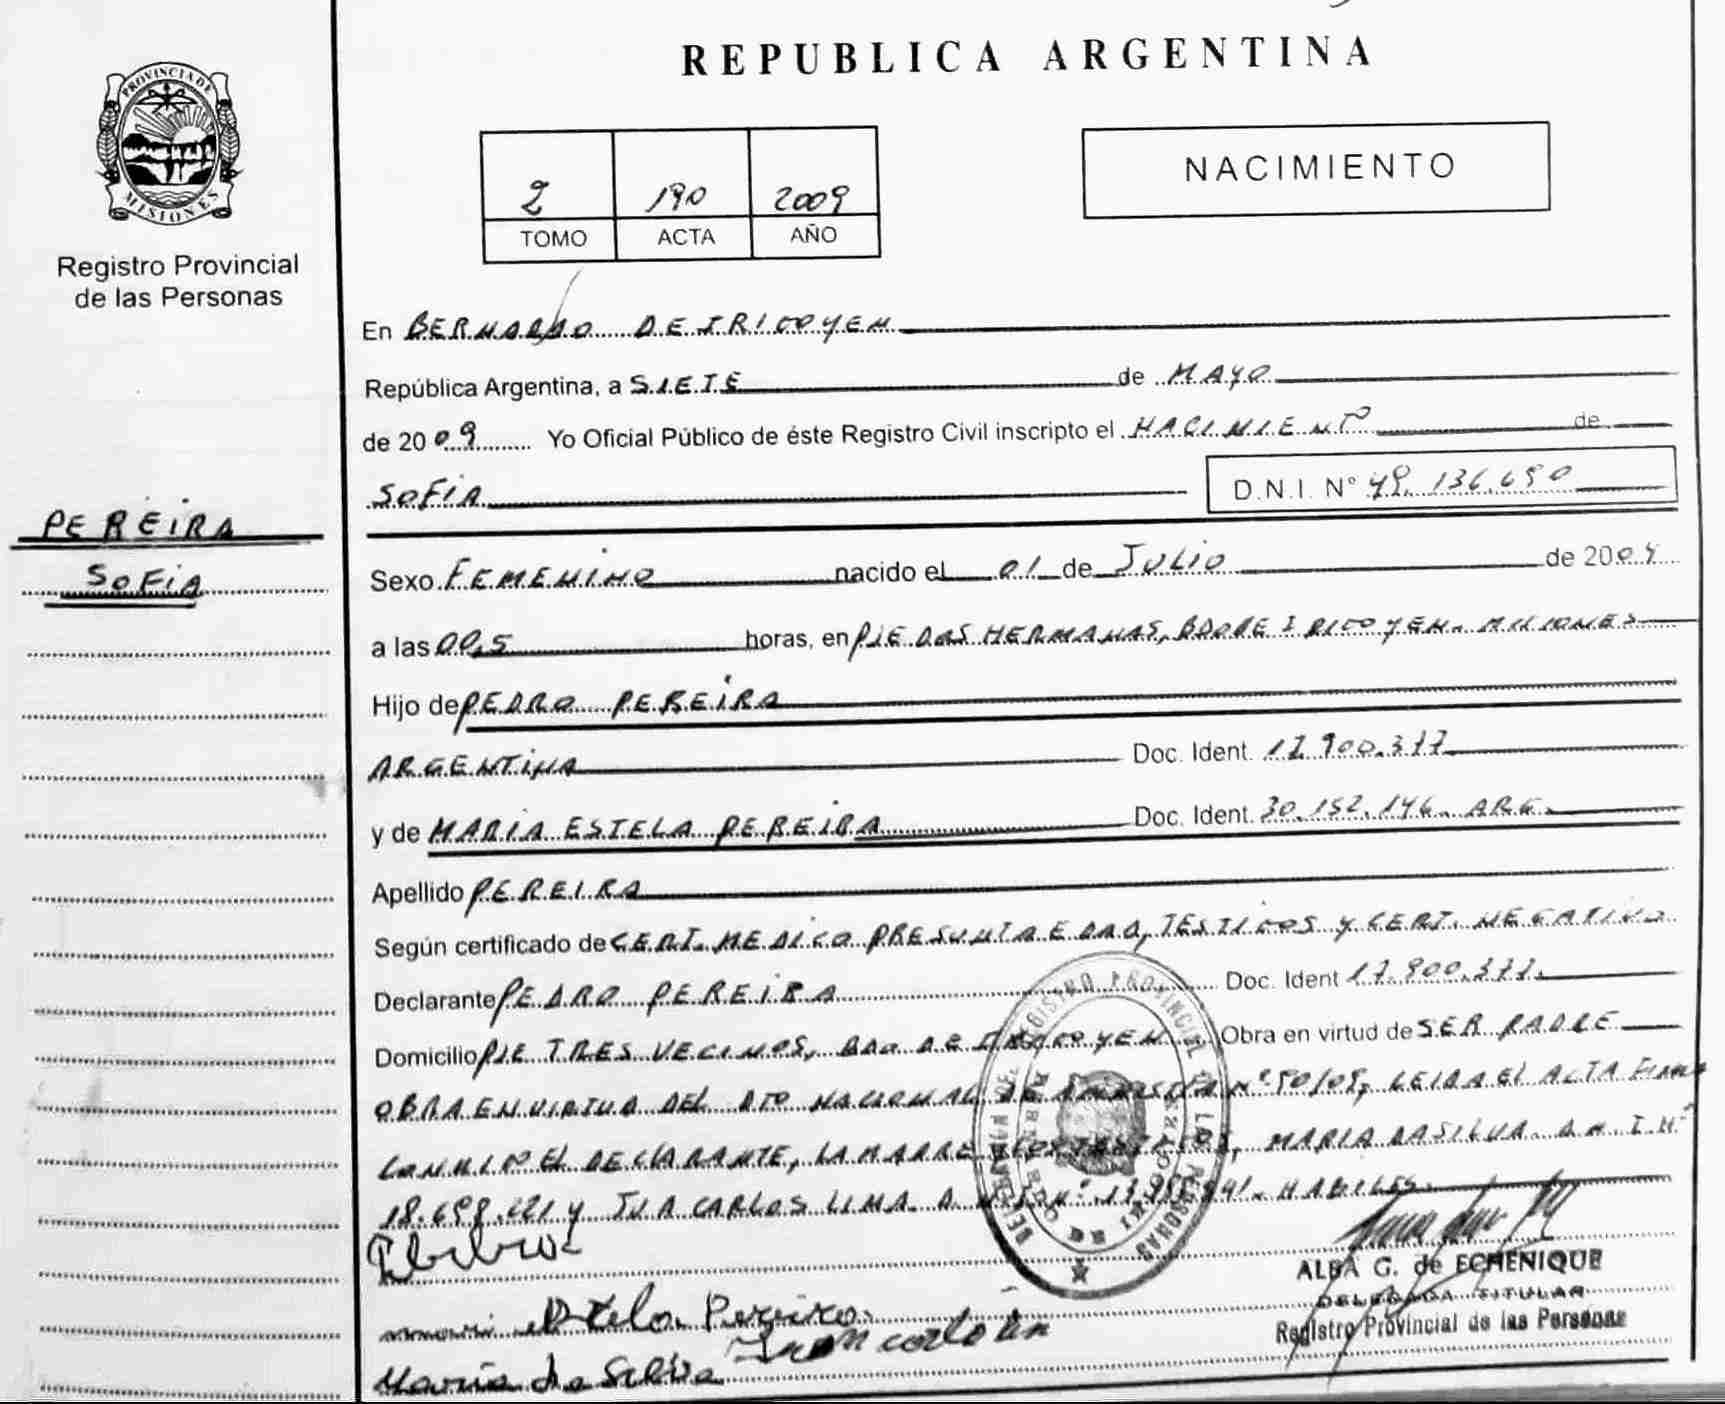 REPUBLICA ARGENTINA
PROVINCIA DE
MISIONES
Registro Provincial
de las Personas
2 190 2009
TOMO ACTA AÑO
NACIMIENTO
En BERNARDO DE IRIGOYEN
República Argentina, a SIETE de MAYO
de 2009 Yo Oficial Público de éste Registro Civil inscripto el NACIMIENTO de
SOFIA D.N.I. Nº 49.136.690
PEREIRA
SOFIA
Sexo FEMENINO nacido el 01 de JULIO de 200
a las 00,5 horas, en PJE DAS HERMANAS, BDO DE IRIGOYEN. MISIONES
Hijo de PEDRO PEREIRA
ARGENTINA Doc. Ident. 17.900.377
y de MARIA ESTELA PEREIRA Doc. Ident. 30.152.146. ARG.
Apellido PEREIRA
Según certificado de CERT. MEDICO PRESUNTA EDAD, TESTIGOS Y CERT. NEGATIVO
Declarante PEDRO PEREIRA Doc. Ident 17.900.377.
Domicilio PJE TRES VECINOS, BDO DE IRIGOYEN Obra en virtud de SER PADRE
OBRA EN VIRTUD DEL DTO NACIONAL DE Nº 90/09, LEIDA EL ACTA FIRMA
CONMIGO EL DECLARANTE, LA MADRE Y LOS TESTIGOS, MARIA DA SILVA. D.N.I Nº
18. Y JUA CARLOS LIMA. D.N.I Nº HABILES.
mari Estela Pereira
Maria da Silva Juan carlo
ALBA G. de ECHENIQUE
DELEGADA TITULAR
Registro Provincial de las Personas